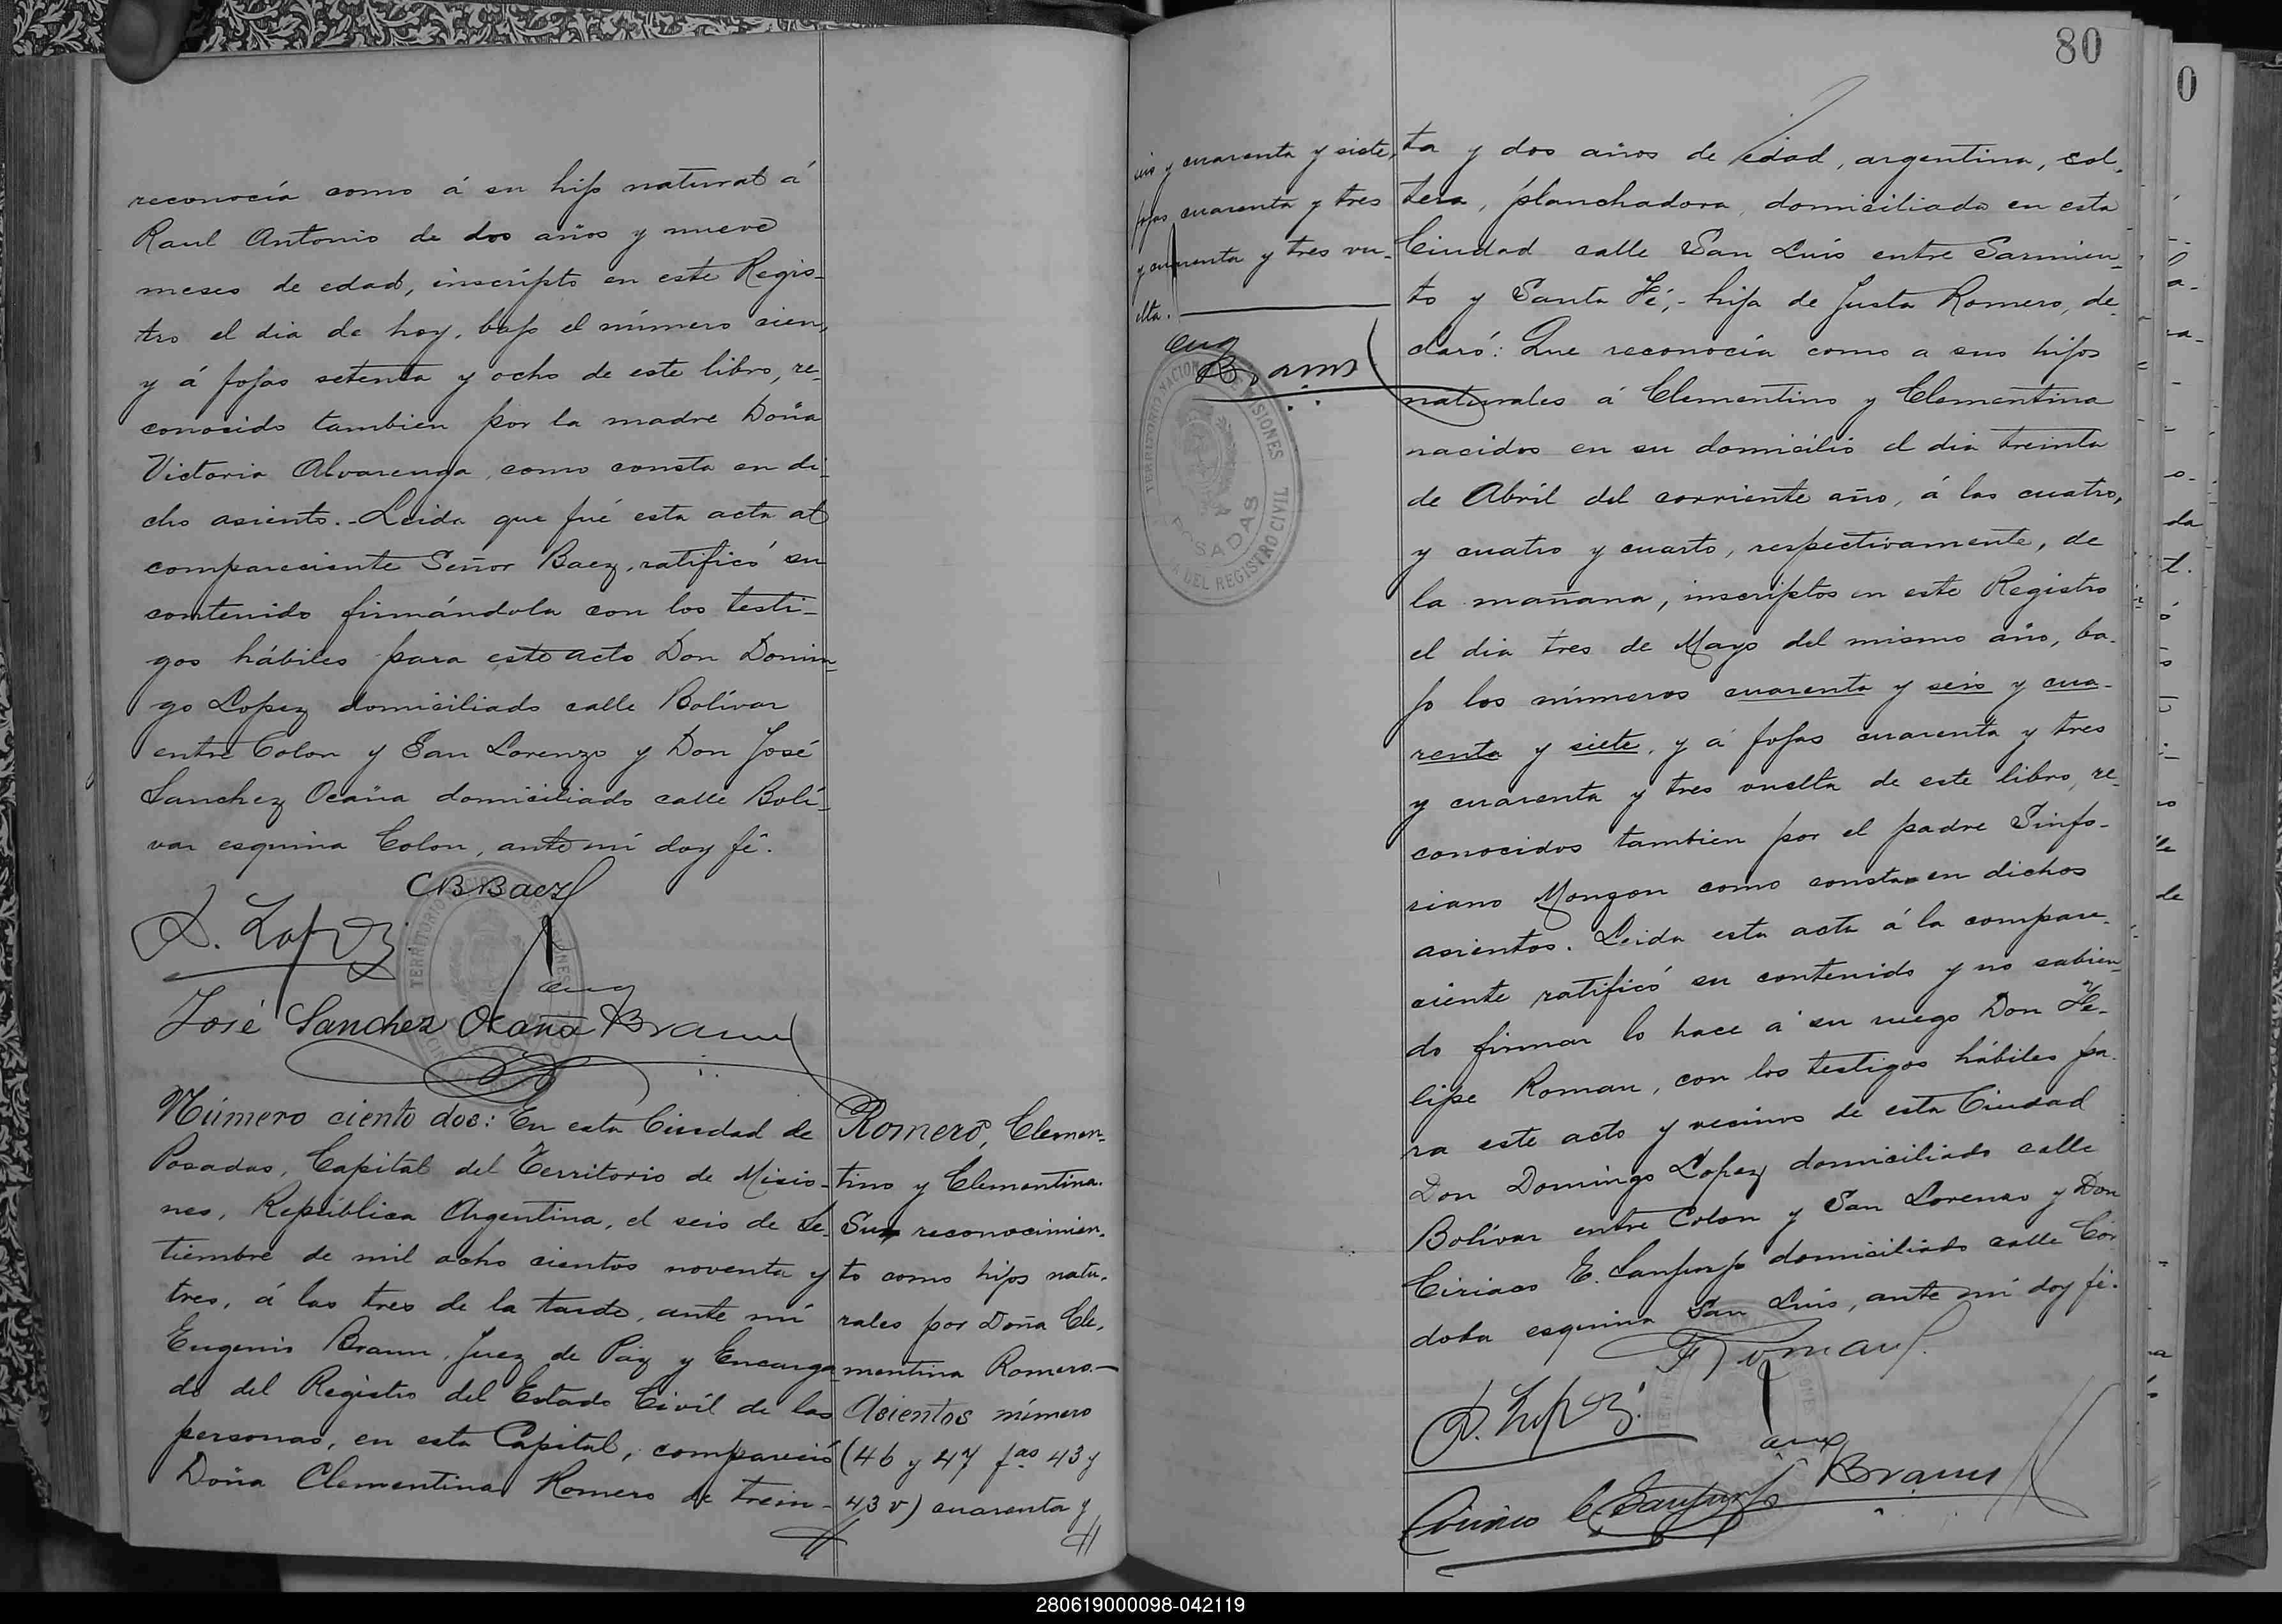 reconocía como á su hijo natural á
Raul Antonio de dos años y nueve
meses de edad, inscripto en este Regis-
tro el dia de hoy, bajo el número cien,
y á fojas setenta y ocho de este libro, re-
conocido tambien por la madre Doña
Victoria Alvarenga, como consta en di-
cho asiento. - Leida que fué esta acta al
compareciente Señor Baez, ratificó su
contenido firmándola con los testi-
gos hábiles para este acto Don Domin-
go Lopez domiciliado calle Bolívar
entre Colon y San Lorenzo y Don José
Sanchez Ocaña domiciliado calle Bolí-
var esquina Colon, ante mí doy fé.
CBBaez
D. Lopez
José Sanchez Ocaña
Eug Braun
Número ciento dos: En esta Ciudad de
Posadas, Capital del Territorio de Misio-
nes, República Argentina, el seis de Se-
tiembre de mil ocho cientos noventa y
tres, á las tres de la tarde, ante mí
Eugenio Braun, Juez de Paz y Encarga-
do del Registro del Estado Civíl de las
personas, en esta Capital, compareció
Doña Clementina Romero de trein-
Romero, Clemen-
tino y Clementina.
Su reconocimien-
to como hijos natu-
rales por Doña Cle-
mentina Romero.—
Asientos número
(46 y 47 fas 43 y
43 v) cuarenta y
80
0
seis y cuarenta y siete,
fojas cuarenta y tres
y cuarenta y tres vu-
elta.
Eug
Braun
TERRITORIO NACIONAL DE MISIONES
POSADAS
DEL REGISTRO CIVIL
ta y dos años de edad, argentina, sol-
tera, planchadora, domiciliada en esta
Ciudad calle San Luis entre Sarmien-
to y Santa Fé, - hija de Justa Romero, de-
claró: Que reconocía como a sus hijos
naturales á Clementino y Clementina
nacidos en su domicilio el dia treinta
de Abríl del corriente año, á las cuatro,
y cuatro y cuarto, respectivamente, de
la mañana, inscriptos en este Registro
el dia tres de Mayo del mismo año, ba-
jo los números cuarenta y seis y cua-
renta y siete, y á fojas cuarenta y tres
y cuarenta y tres vuelta de este libro, re-
conocidos tambien por el padre Sinfo-
riano Monzon como consta en dichos
asientos. Leida esta acta á la compare-
ciente ratificó su contenido y no sabien-
do firmar lo hace á su ruego Don Fe-
lipe Roman, con los testigos hábiles pa-
ra este acto y vecinos de esta Ciudad
Don Domingo Lopez domiciliado calle
Bolívar entre Colon y San Lorenzo y Don
Ciriaco E. Sanjurjo domiciliado calle Cór-
doba esquina San Luis, ante mí doy fé.
F Roman
D. Lopez
Eug Braun
Ciriaco E Sanjurjo
280619000098-042119